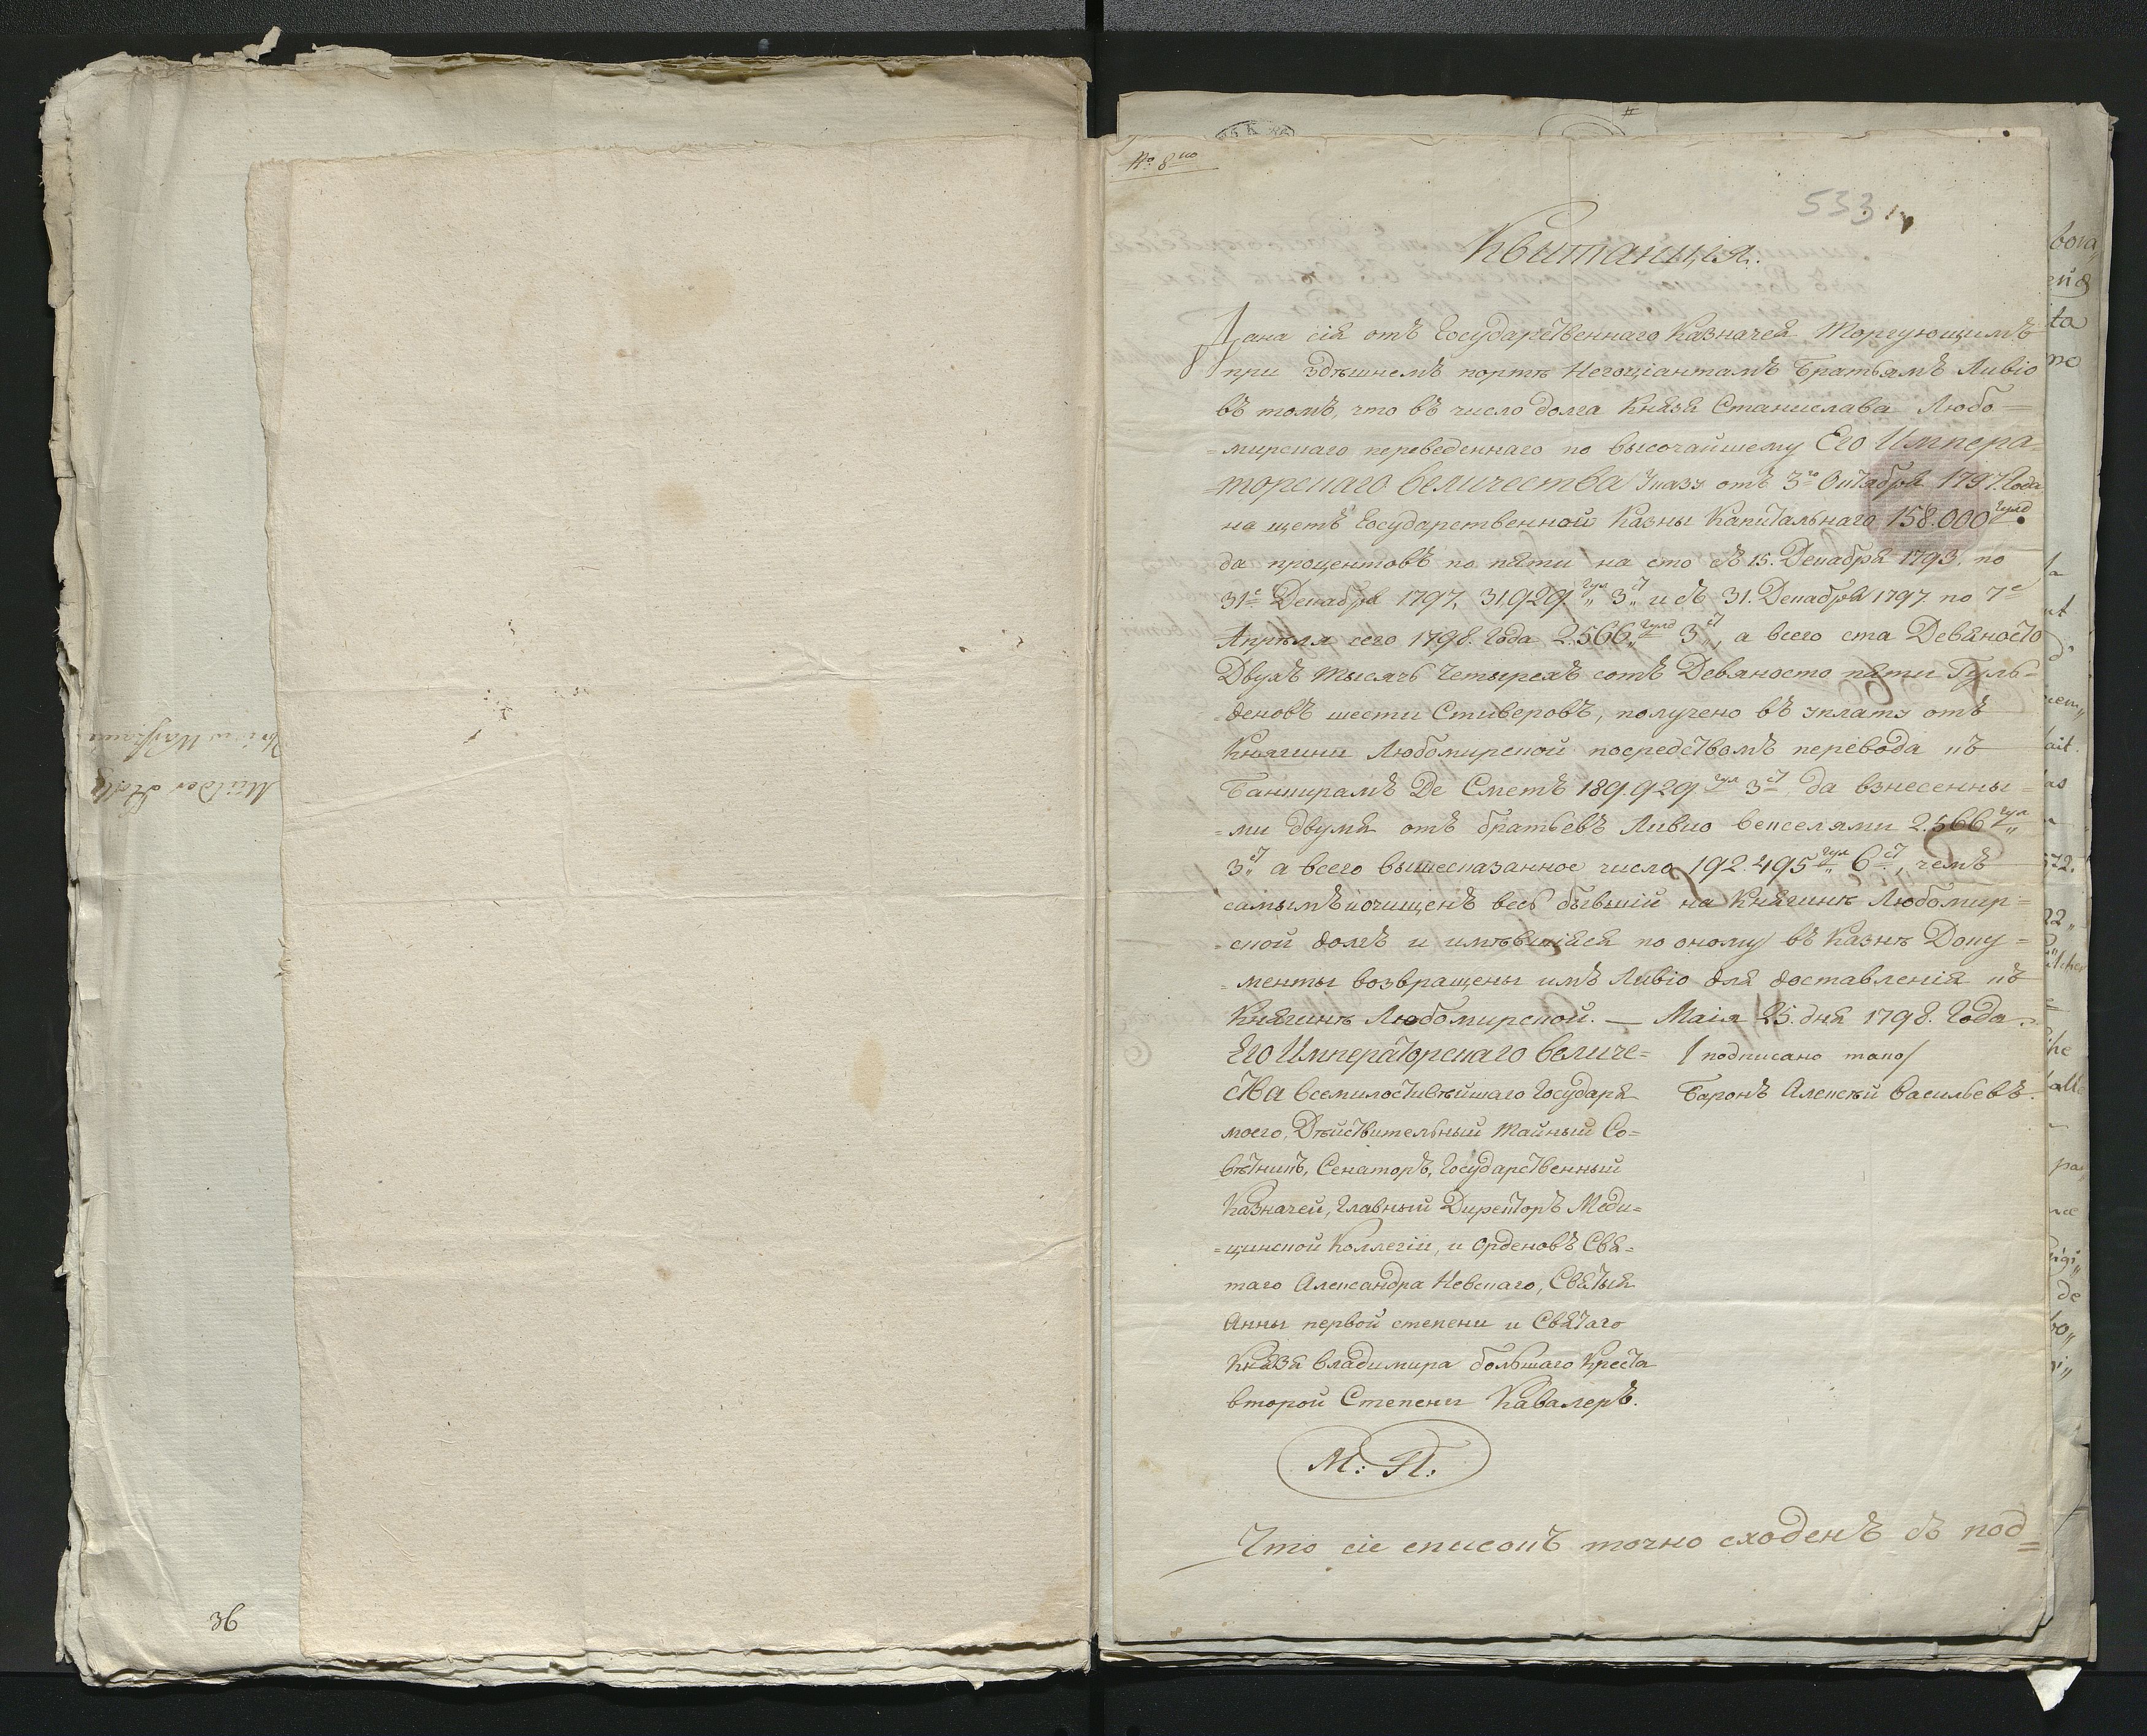 36
No 8vo
533
Квитанція.
Дана сія отъ Государственнаго Казначея Торгующимъ
при здѣшнемъ портѣ Негоціантамъ Братьямъ Ливіо
въ томъ, что въ число долга Князя Станислава Любо=
=мирскаго переведеннаго по высочайшему Его Импера=
=торскаго Величества Указу отъ 3го Октября 1797. Года
на щетъ Государственной Казны Капитальнаго 158.000 гулд.
да процентовъ по пяти на сто съ 15. Декабря 1793. по
31е Декабря 1797. 31,929. гул 3 ст и съ 31. Декабря 1797. по 7е
Апрѣля сего 1798. Года 2.566 гулд 3 ст, а всего ста Девяносто
Двухъ тысячь Четырехъ сотъ Девяносто пяти Гуль=
=деновъ шести Стиверовъ, получено въ уплату отъ
Княгини Любомирской посредствомъ перевода къ
Банкирамъ Де Сметъ 189.929. гул 3 ст да взнесенны=
=ми двумя отъ братьевъ Ливио векселями 2.566 гул
3 ст а всего вышесказанное число 192.495 гул 6 ст, чемъ
самымъ и очищенъ весь бывшій на Княгинѣ Любомир=
=ской долгъ и имѣвшіяся по оному въ Казнѣ Доку=
=менты возвращены имъ Ливіо для доставленія къ
Княгинѣ Любомирской. — Маія 25. дня 1798. Года.
Его Императорскаго Величе=
ства Всемилостивѣйшаго Государя
моего, Дѣйствительный Тайный Со=
вѣтникъ, Сенаторъ, Государственный
Казначей, Главный Директоръ Меди=
=цинской Коллегіи, и Орденовъ Свя=
таго Александра Невскаго, Святыя
Анны первой степени и Святаго
Князя Владимира большаго Креста
второй Степени Кавалеръ.
/ подписано тако /
Баронъ Алексѣй Васильевъ.
М: П:
Что сіе списокъ точно сходенъ съ под=